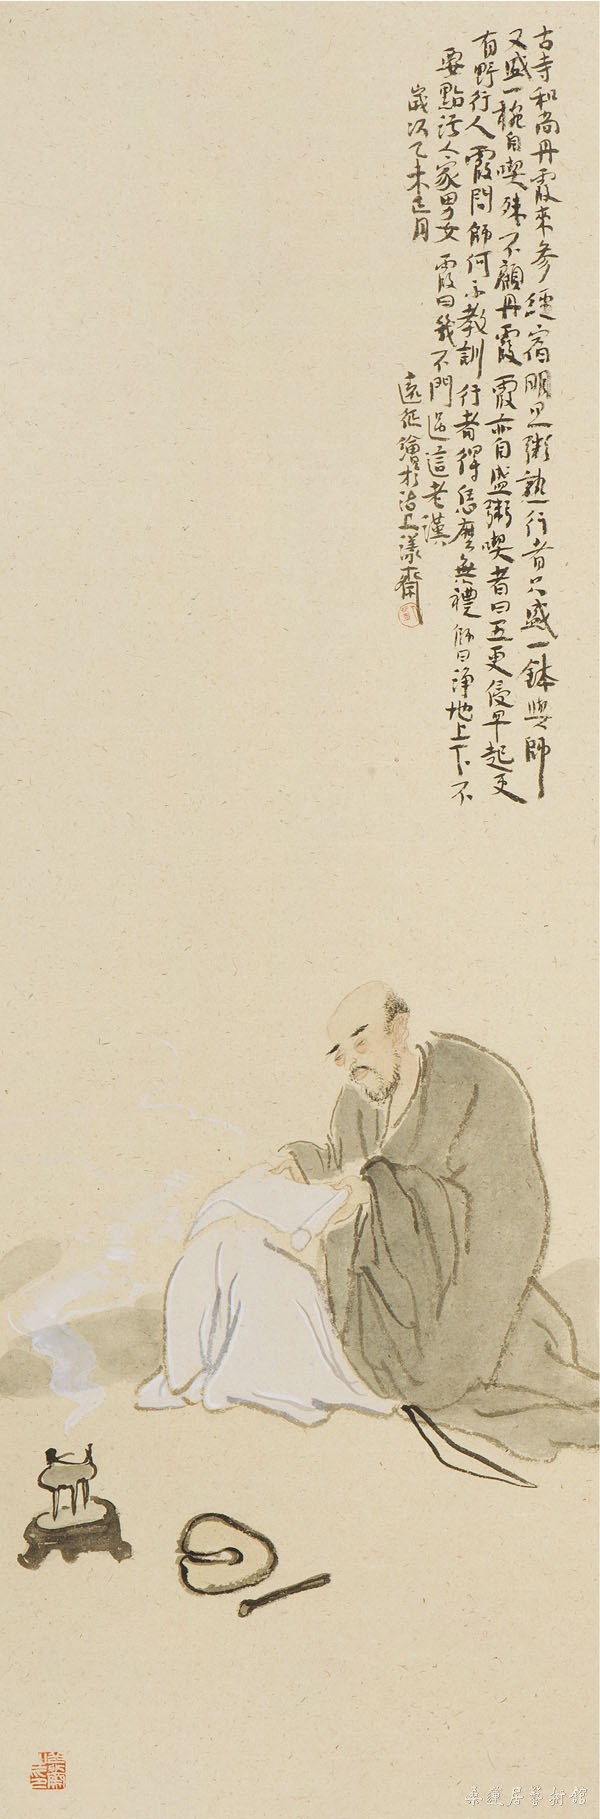 古寺和尚丹霞來參經宿明旦粥熟行者只盛一鉢與師
又盛一椀自喫殊不顧丹霞霞亦自盛粥喫者曰五更侵早起更
有野行人霞問師何不教訓行者得恁麼無禮師曰淨地上不
要點污人家男女霞曰幾不問過這老漢
歲次乙未正月
遠征繪於沽上漾齋
桑蓮居藝術館